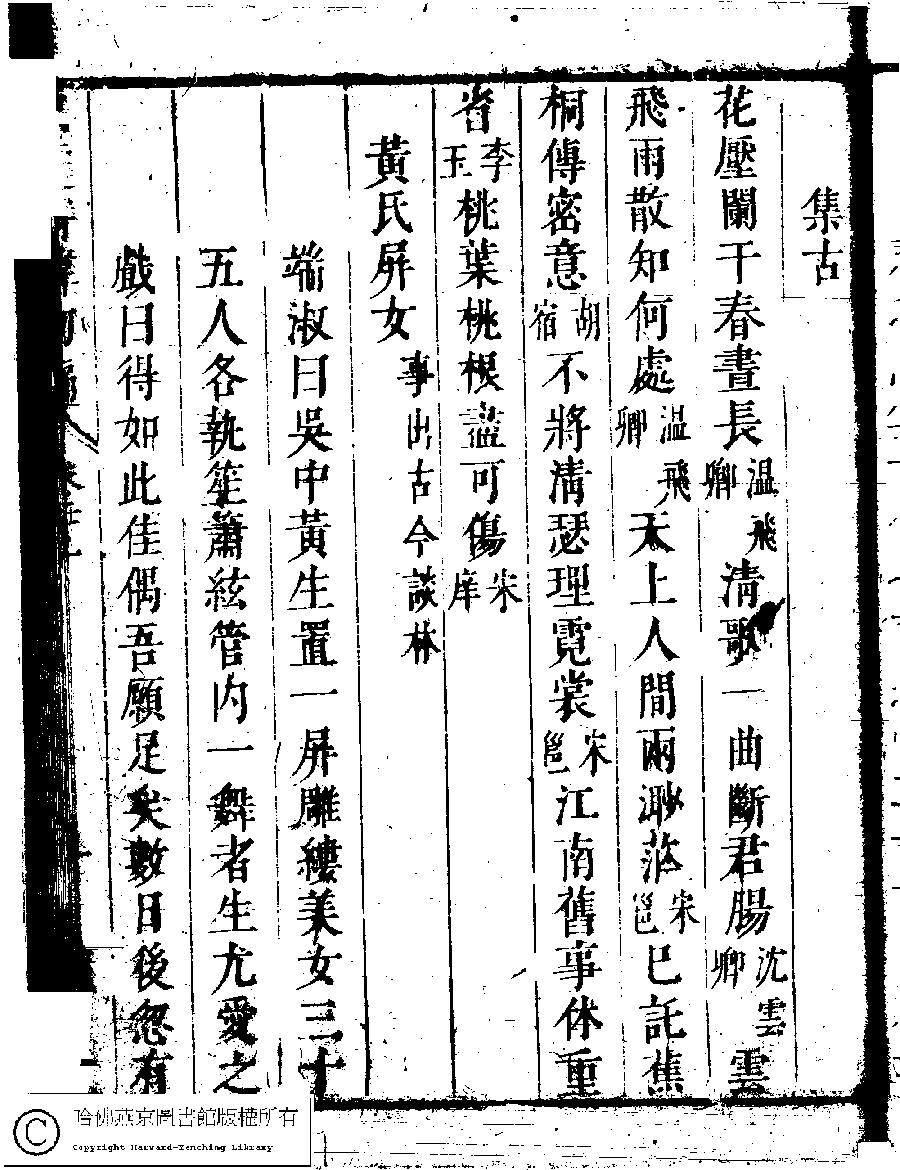 集古
花壓闌干春晝長温飛卿清歌一曲斷君腸沈雲卿雲
飛雨散知何處温飛卿天上人間兩渺茫宋邕已託焦
桐傳密意胡宿不將清瑟理霓裳宋邕江南舊事休重
省李玉桃葉桃根盡可傷宋庠
黃氏屏女事出古今談林
端淑曰吳中黃生置一屏雕縷美女三十
五人各執笙簫絃管内一舞者生尤愛之
戲曰得如此佳偶吾願足矣數日後忽有
哈佛燕京圖書館版權所有
Copyright Harvard-Yenching Library